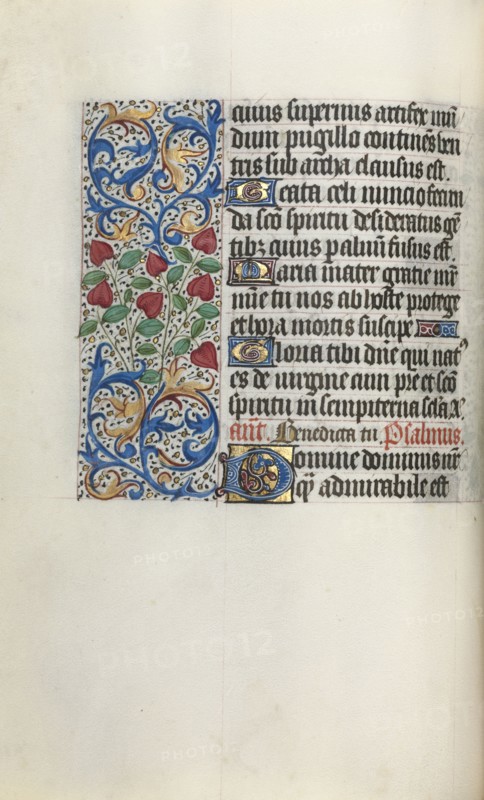 cuius supernus artifex mũ
dum pugillo continẽs ven
tris sub archa clausus est.
Beata celi nuncio fecun
da sco spiritu desideratus gẽ
tibꝫ cuius p aluũ fusus est.
Maria mater gratie mr̃
mĩe tu nos ab hoste protege
et hora mortis suscipe
Gloria tibi dñe qui natꝰ
es de uirgine cum pr̃e et sco
spiritu in sempiterna scla Aꝫ.
ant. Benedicta tu Psalmus.
Domine dominus nr̃
qꝫ admirabile est
PHOTO12